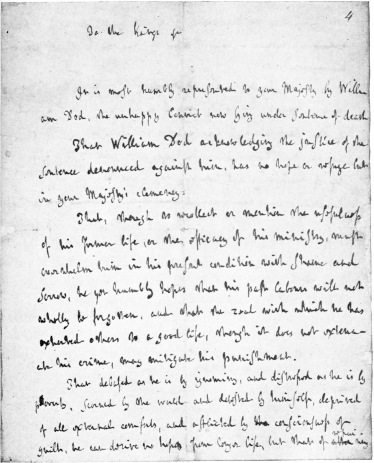 4
To the King's &c
It is most humbly represented to your Majesty by Willi
am Dod, the unhappy Convict now lying under sentence of death
That William Dod acknowledging the justice of the
sentence denounced against him, has no hope or refuge but
in your Majesty's clemency.
That, though to recollect or mention the usefulness
of his former life, or the efficacy of his ministry, must
overwhelm him in his present condition with shame and
sorrow, he yet humbly hopes that his past labours will not
wholly be forgotten, and that the zeal with which he has
exhorted others to a good life, though it does not extenu-
ate his crime, may mitigate his punishment.
That debased as he is by ignominy, and distressed as he is by
poverty, scorned by the world and detested by himself, deprived
of all external comforts, and afflicted by the consciousness of
guilt, he can derive no hopes from longer life, but that of